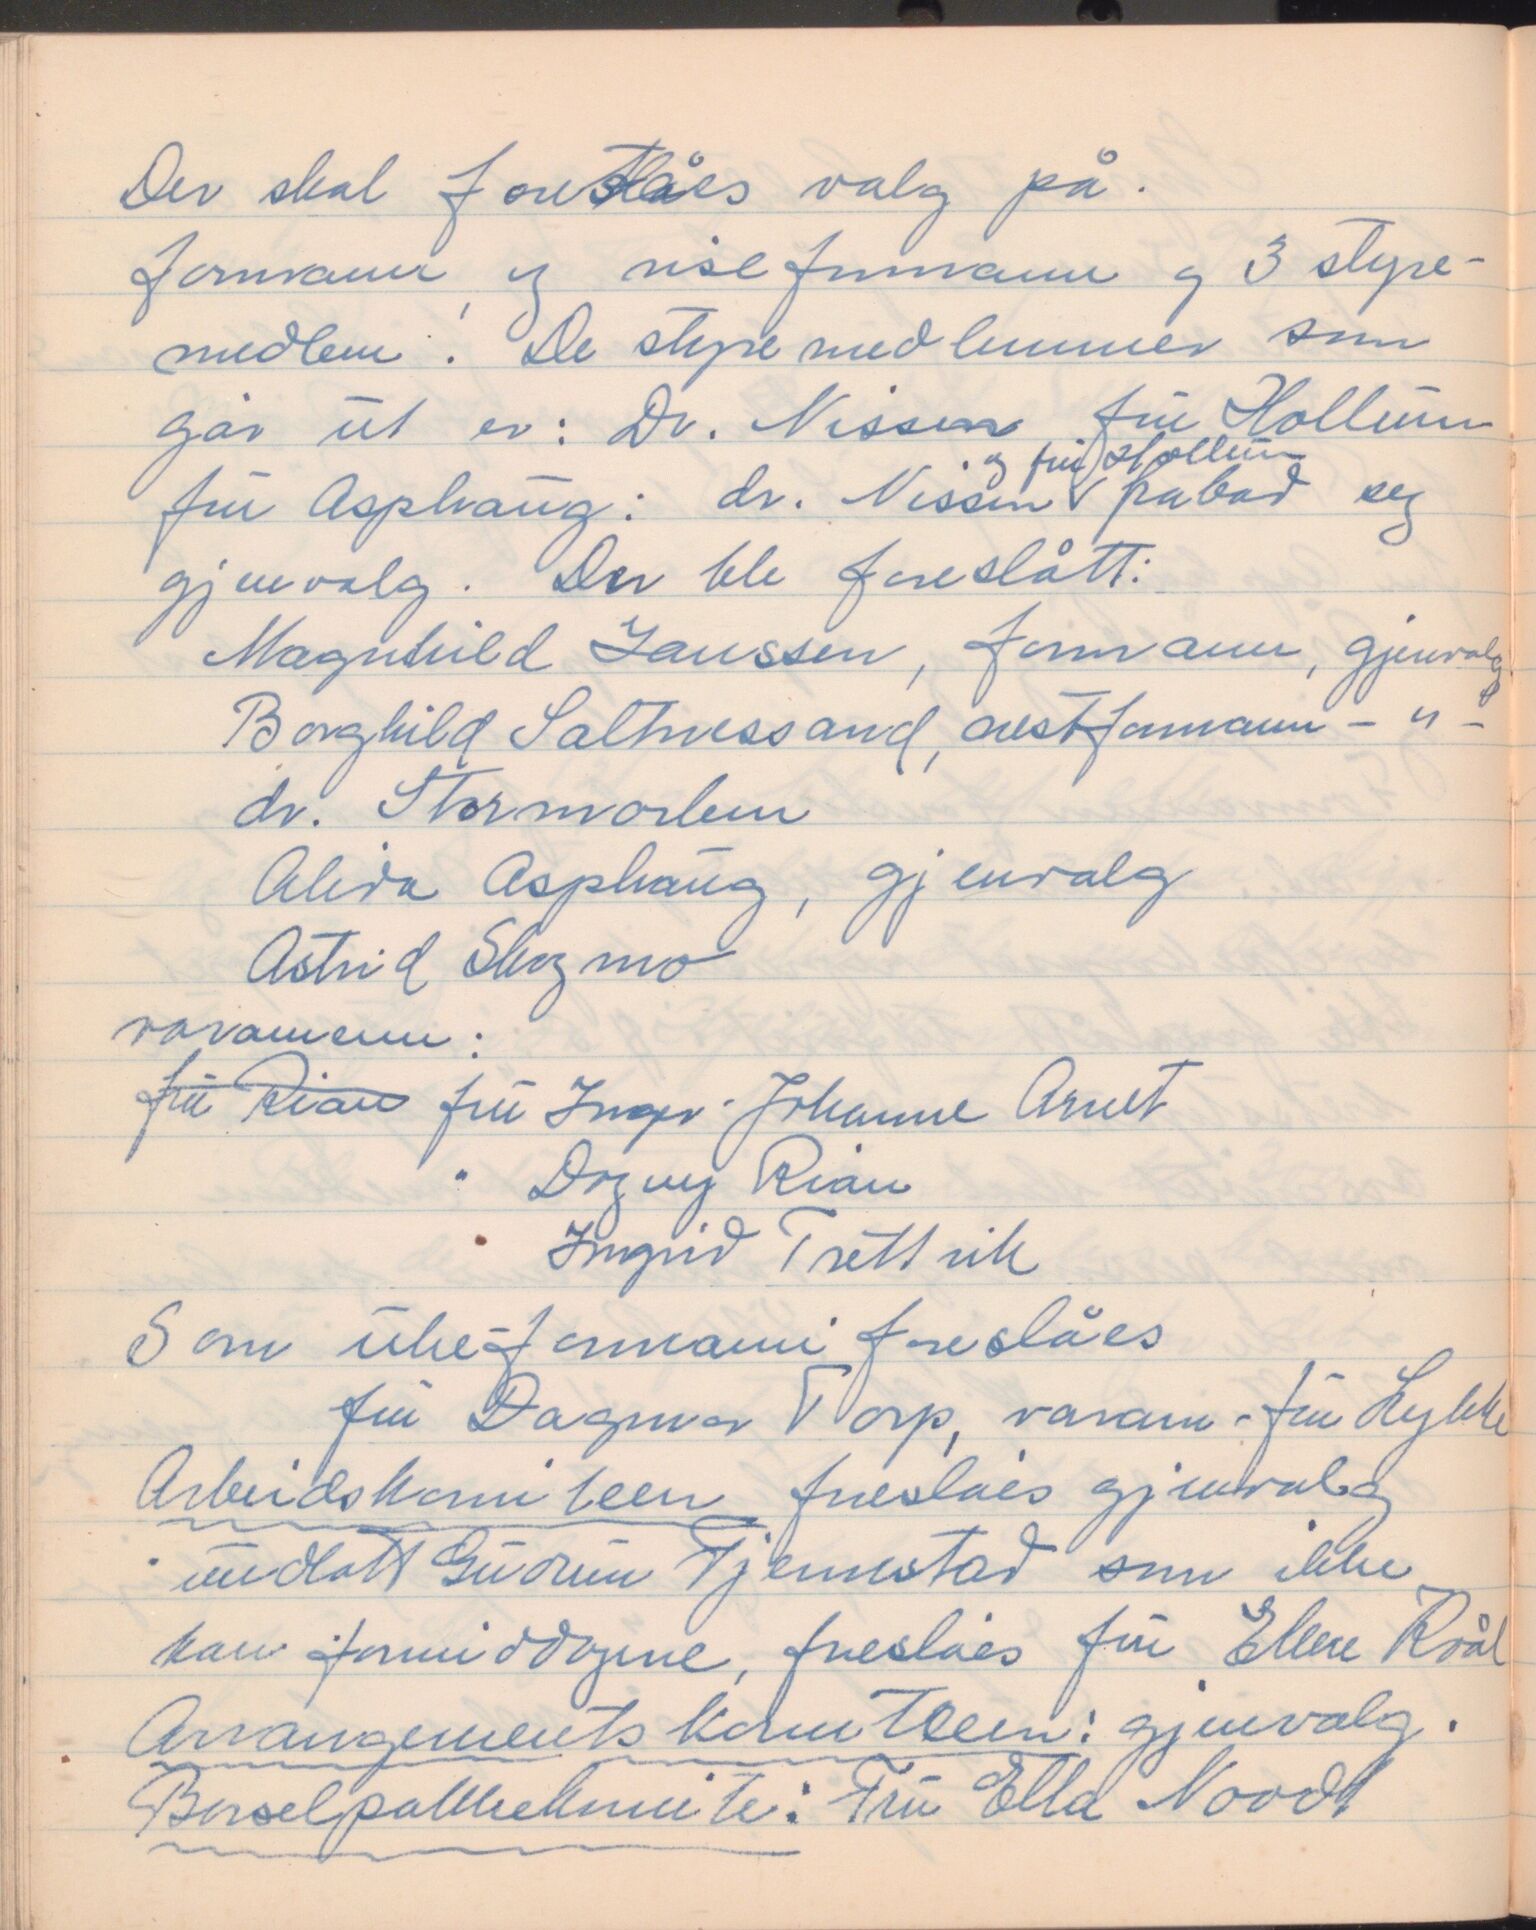 Der skal foreslåes valg på.
formann, og vise formann og 3 styre-
medlem. De styremedlemmer som
går ut er: Dr. Nissen fru Hollum
og fru Hollum
fru Asphaug: dr. Nissen påbad seg
gjenvalg. Der ble foreslått:
Magnhild Janssen, formann, gjenvalg.
Borghild Saltnessand, nestformann - " -
dr. Stormorken
Alida Asphaug, gjenvalg
Astrid Skogmo
varamenn:
fru Rian fru Inger-Johanne Arnet
" Dagny Rian
" Ingrid Trettvik
Som uke-formann foreslåes
fru Dagmar Torp, varam. fru Lykke
Arbeidskomiteen foreslåes gjenvalg
undtatt Gudrun Tjernstad som ikke
kan formiddagene, foreslåes fru Ellen Kvål
Arrangementskomiteen: gjenvalg.
Barselpakkekomite: Fru Ella Noodt